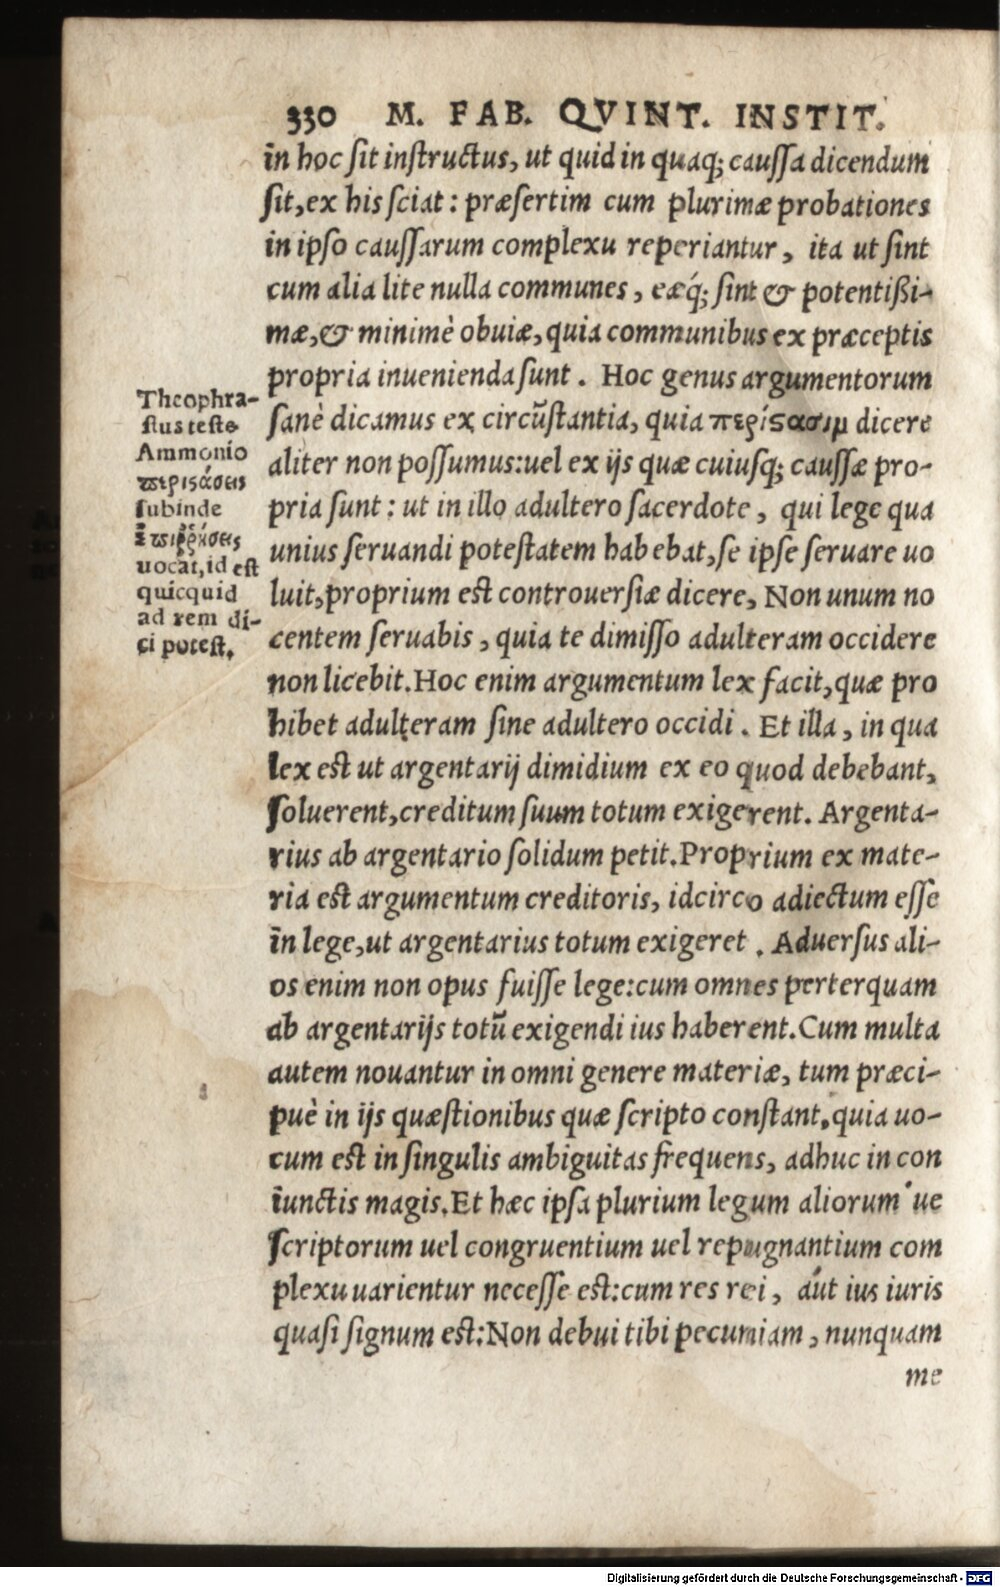 330 M. FAB. QVINT. INSTIT.
in hoc ſit inſtructus, ut quid in quaq; cauſſa dicendum
ſit, ex his ſciat : præſertim cum plurimæ probationes
in ipſo cauſſarum complexu reperiantur, ita ut ſint
cum alia lite nulla communes, eæq́; ſint & potentißi-
mæ, & minimè obuiæ, quia communibus ex præceptis
propria inuenienda ſunt. Hoc genus argumentorum
ſanè dicamus ex circũſtantia, quia dicere
aliter non poſſumus: uel ex ijs quæ cuiuſq; cauſſæ pro-
pria ſunt : ut in illo adultero ſacerdote, qui lege qua
unius ſeruandi poteſtatem habebat, ſe ipſe ſeruare uo
luit, proprium est controuerſiæ dicere, Non unum no
centem ſeruabis, quia te dimiſſo adulteram occidere
non licebit. Hoc enim argumentum lex facit, quæ pro
hibet adulteram ſine adultero occidi. Et illa, in qua
lex est ut argentarij dimidium ex eo quod debebant,
ſoluerent, creditum ſuum totum exigerent. Argenta-
rius ab argentario ſolidum petit. Proprium ex mate-
ria est argumentum creditoris, idcirco adiectum eſſe
in lege, ut argentarius totum exigeret. Aduerſus ali-
os enim non opus fuiſſe lege: cum omnes perterquam
ab argentarijs totũ exigendi ius haberent. Cum multa
autem nouantur in omni genere materiæ, tum præci-
puè in ijs quæſtionibus quæ ſcripto conſtant, quia uo-
cum est in ſingulis ambiguitas frequens, adhuc in con
iunctis magis. Et hæc ipſa plurium legum aliorum'ue
ſcriptorum uel congruentium uel repugnantium com
plexu uarientur neceſſe est: cum res rei, aut ius iuris
quaſi ſignum est: Non debui tibi pecuniam, nunquam
me
Theophra-
ſtus teſte
Ammonio
ϖεριϛάσεις
ſubinde
uocat, id eſt
quicquid
ad rem di-
ci poteſt.
Digitalisierung gefördert durch die Deutsche Forschungsgemeinschaft - DFG